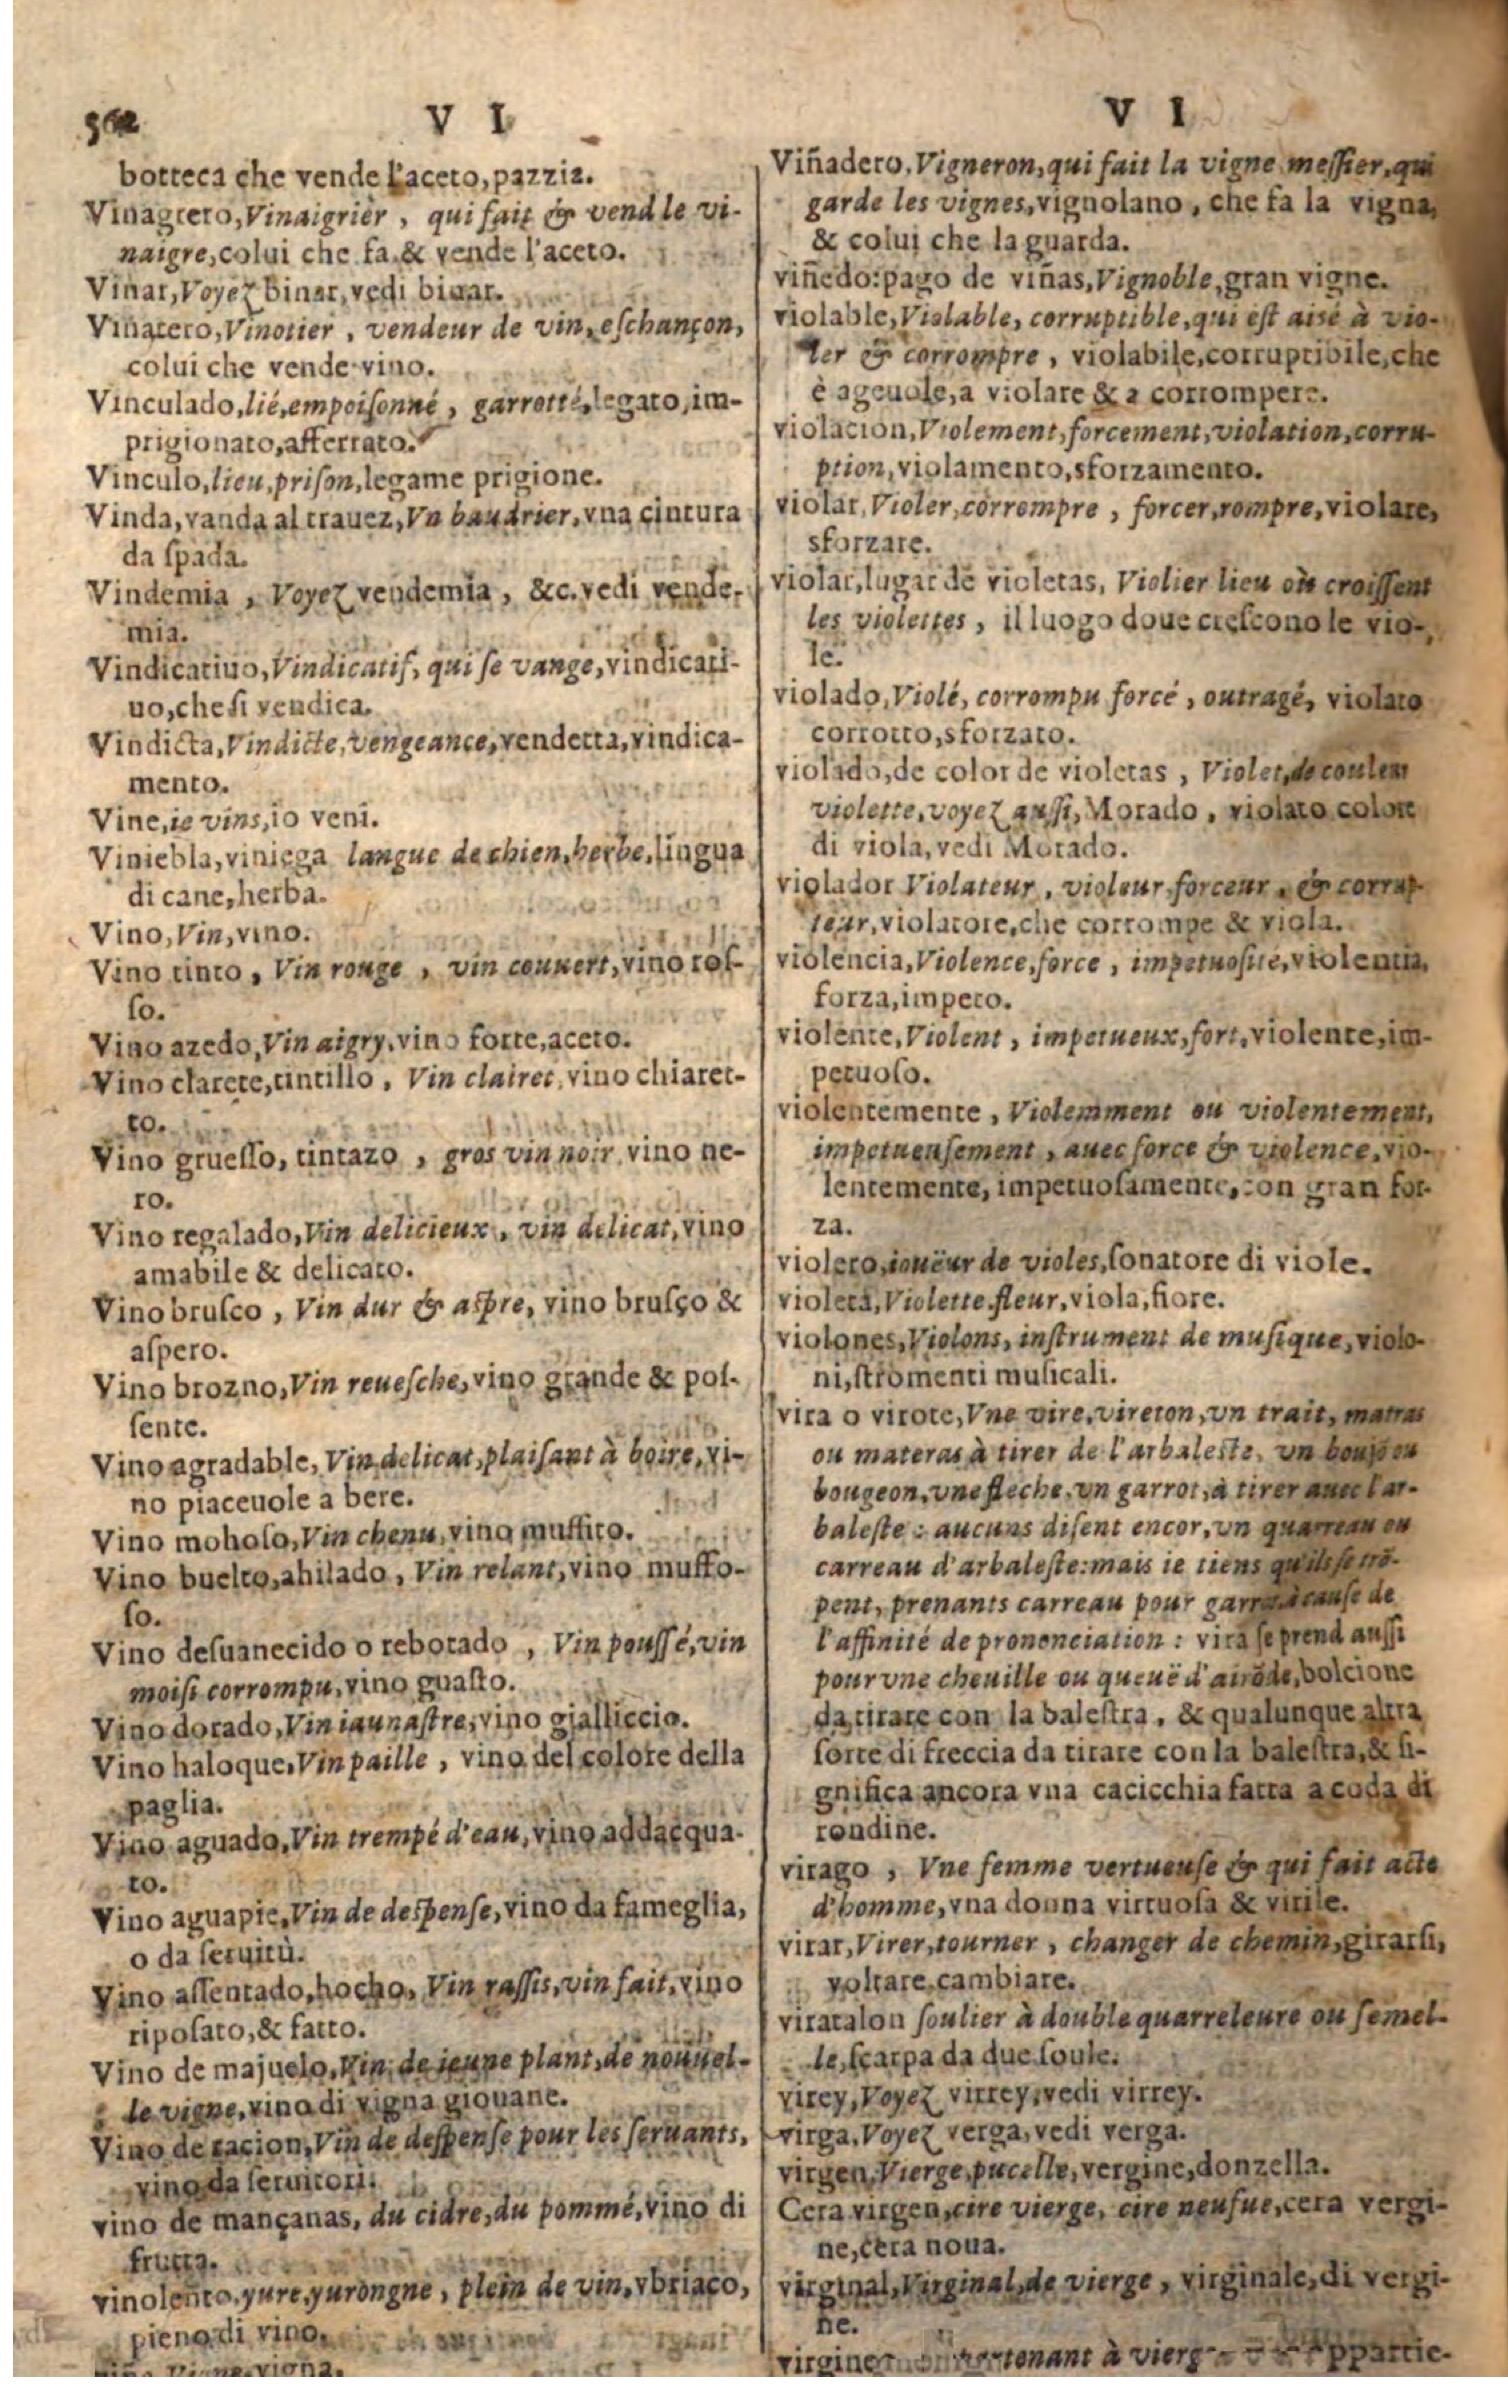 562
V I
botteca che vende l'aceto, pazzia.
Vinagrero, Vinaigrier, qui fait & vend le vi-
naigre, colui che fa & vende l'aceto.
Vinar, Voyez binar, vedi binar.
Vinatero, Vinotier, vendeur de vin, eschançon,
colui che vende vino.
Vinculado, lié, empoisonné, garrotté, legato, im-
prigionato, afferrato.
Vinculo, lieu, prison, legame prigione.
Vinda, vanda al trauez, Vn baudrier, vna cintura
da spada.
Vindemia, Voyez vendemia, &c. vedi vende-
mia.
Vindicatiuo, Vindicatif, qui se vange, vindicati-
uo, che si vendica.
Vindicta, Vindicte, vengeance, vendetta, vindica-
mento.
Vine, ie vins, io veni.
Viniebla, viniega langue de chien, herbe, lingua
di cane, herba.
Vino, Vin, vino.
Vino tinto, Vin rouge, vin couuert, vino ros-
so.
Vino azedo, Vin aigry, vino forte, aceto.
Vino clarete, tintillo, Vin clairet, vino chiaret-
to.
Vino gruesso, tintazo, gros vin noir, vino ne-
ro.
Vino regalado, Vin delicieux, vin delicat, vino
amabile & delicato.
Vino brusco, Vin dur & aspre, vino brusço &
aspero.
Vino brozno, Vin reuesche, vino grande & pos-
sente.
Vino agradable, Vin delicat, plaisant à boire, vi-
no piaceuole a bere.
Vino mohoso, Vin chenu, vino muffito.
Vino buelto, ahilado, Vin relant, vino muffo-
so.
Vino desuanecido o rebotado, Vin poussé, vin
moisi corrompu, vino guasto.
Vino dorado, Vin iaunastre, vino gialliccio.
Vino haloque, Vin paille, vino del colore della
paglia.
Vino aguado, Vin trempé d'eau, vino addacqua-
to.
Vino aguapie, Vin de despense, vino da fameglia,
o da seruitù.
Vino assentado, hocho, Vin rassis, vin fait, vino
riposato, & fatto.
Vino de majuelo, Vin de ieune plant, de nouuel-
le vigne, vino di vigna giouane.
Vino de racion, Vin de despense pour les seruants,
vino da seruitori.
vino de mançanas, du cidre, du pommé, vino di
frutta.
vinolento, yure, yurongne, plein de vin, vbriaco,
pieno di vino.
viña Vigne, vigna.
V I
Viñadero, Vigneron, qui fait la vigne messier, qui
garde les vignes, vignolano, che fa la vigna,
& colui che la guarda.
viñedo: pago de viñas, Vignoble, gran vigne.
violable, Violable, corruptible, qui est aisé à vio-
ler & corrompre, violabile, corruptibile, che
è ageuole, a violare & a corrompere.
violacion, Violement, forcement, violation, corru-
ption, violamento, sforzamento.
violar, Violer, corrompre, forcer, rompre, violare,
sforzare.
violar, lugar de violetas, Violier lieu où croissent
les violettes, il luogo doue crescono le vio-
le.
violado, Violé, corrompu forcé, outragé, violato
corrotto, sforzato.
violado, de color de violetas, Violet, de couleur
violette, voyez aussi, Morado, violato colore
di viola, vedi Morado.
violador Violateur, violeur, forceur, & corrup-
teur, violatore, che corrompe & viola.
violencia, Violence, force, impetuosité, violentia,
forza, impeto.
violente, Violent, impetueux, fort, violente, im-
petuoso.
violentemente, Violemment ou violentement,
impetueusement, auec force & violence, vio-
lentemente, impetuosamente, con gran for-
za.
violero, iouëur de violes, sonatore di viole.
violeta, Violette fleur, viola, fiore.
violones, Violons, instrument de musique, violo-
ni, stromenti musicali.
vira o virote, Vne vire, vireton, vn trait, matras
ou materas à tirer de l'arbaleste, vn boujō ou
bougeon, vne fleche, vn garrot, à tirer auec l'ar-
baleste: aucuns disent encor, vn quarreau ou
carreau d'arbaleste: mais ie tiens qu'ils se trō-
pent, prenants carreau pour garrot à cause de
l'affinité de prononciation: vira se prend aussi
pour vne cheuille ou queuë d'airōde, bolcione
da tirare con la balestra, & qualunque altra
sorte di freccia da tirare con la balestra, & si-
gnifica ancora vna cacicchia fatta a coda di
rondine.
virago, Vne femme vertueuse & qui fait acte
d'homme, vna donna virtuosa & virile.
virar, Virer, tourner, changer de chemin, girarsi,
voltare, cambiare.
viratalon soulier à double quarreleure ou semel-
le, scarpa da due soule.
virey, Voyez virrey, vedi virrey.
virga, Voyez verga, vedi verga.
virgen, Vierge, pucelle, vergine, donzella.
Cera virgen, cire vierge, cire neufue, cera vergi-
ne, cera noua.
virginal, Virginal, de vierge, virginale, di vergi-
ne.
à vierg appartie-